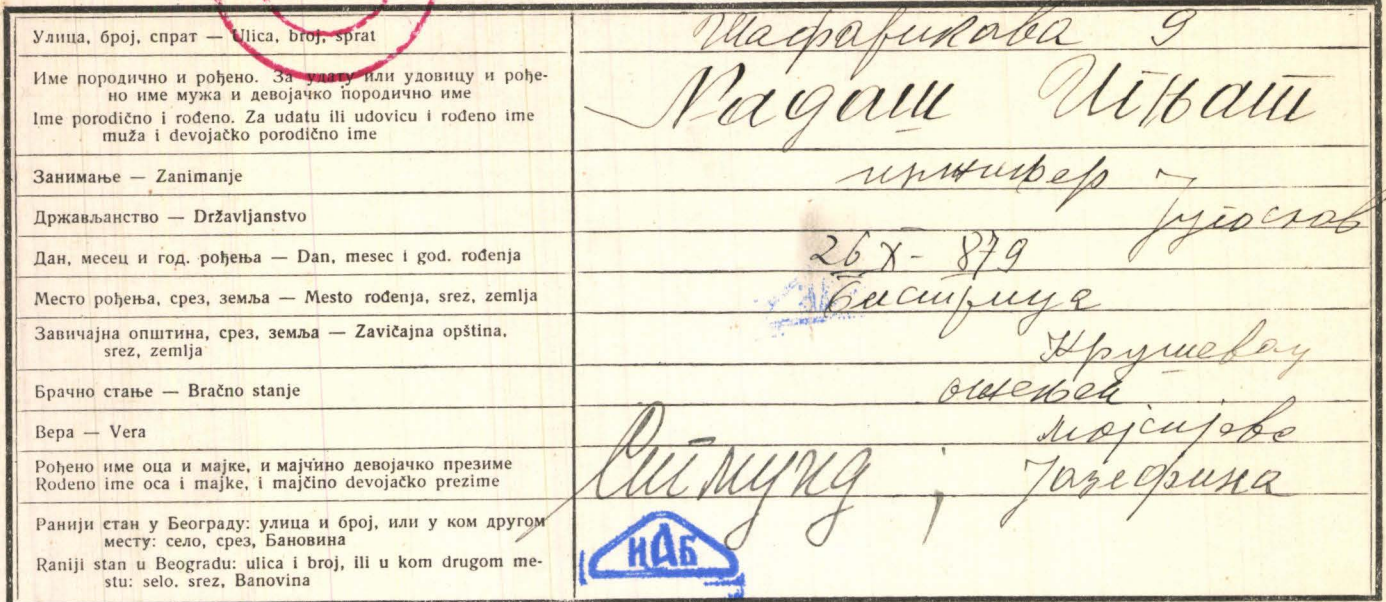 Улица, број, спрат — Ulica, broj, sprat
Шафарикова 9
Име породично и рођено. За удату или удовицу и рође-
но име мужа и девојачко породично име
Ime porodično i rođeno. Za udatu ili udovicu i rođeno ime
muža i devojačko porodično ime
Надаш Игњат
Занимање — Zanimanje
инжињер
Држављанство — Državljanstvo
Југослов
Дан, месец и год. рођења — Dan, mesec i god. rođenja
26 X - 879
Место рођења, срез, земља — Mesto rođenja, srez, zemlja
Бистрица
Завичајна општина, срез, земља — Zavičajna opština,
srez, zemlja
Крушевац
Брачно стање — Bračno stanje
ожењен
Вера — Vera
мојсијеве
Рођено име оца и мајке, и мајчино девојачко презиме
Rođeno ime oca i majke, i majčino devojačko prezime
Сигмунд ; Јозефина
Ранији стан у Београду: улица и број, или у ком другом
месту: село, срез, Бановина
Raniji stan u Beogradu: ulica i broj, ili u kom drugom me-
stu: selo. srez, Banovina
ИАБ